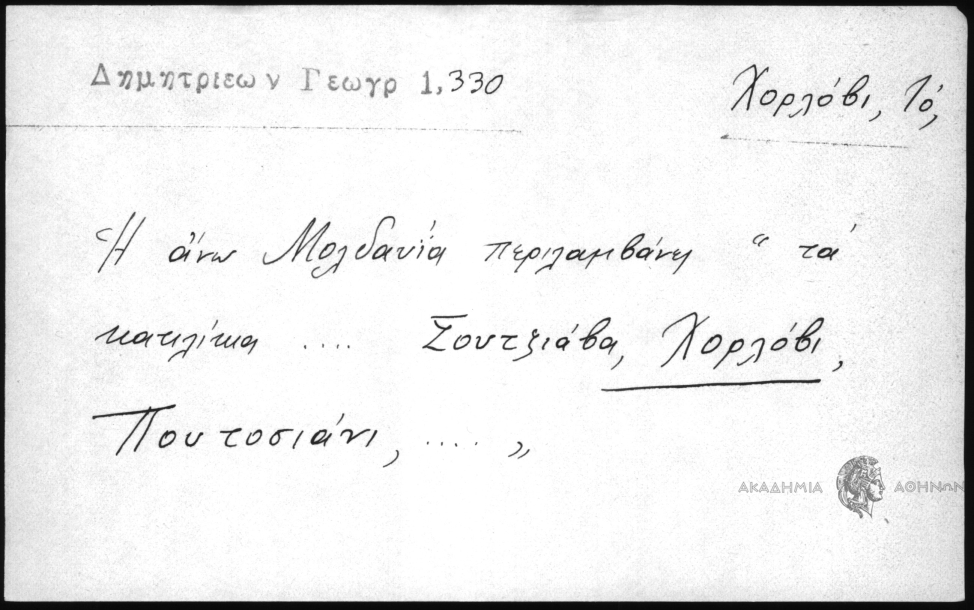 Δημητριεων Γεωγρ 1,330
Χορλόβι, Τό,
Ἡ ἄνω Μολδαυΐα περιλαμβάνη “ τά
κατιλίκια .... Σουτζιάβα, Χορλόβι,
Πουτοσιάνι, ..... „
ΑΚΑΔΗΜΙΑ ΑΘΗΝΩΝ